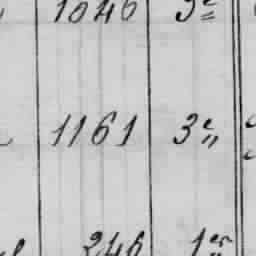 1046 3e
1161 3e
246 1er